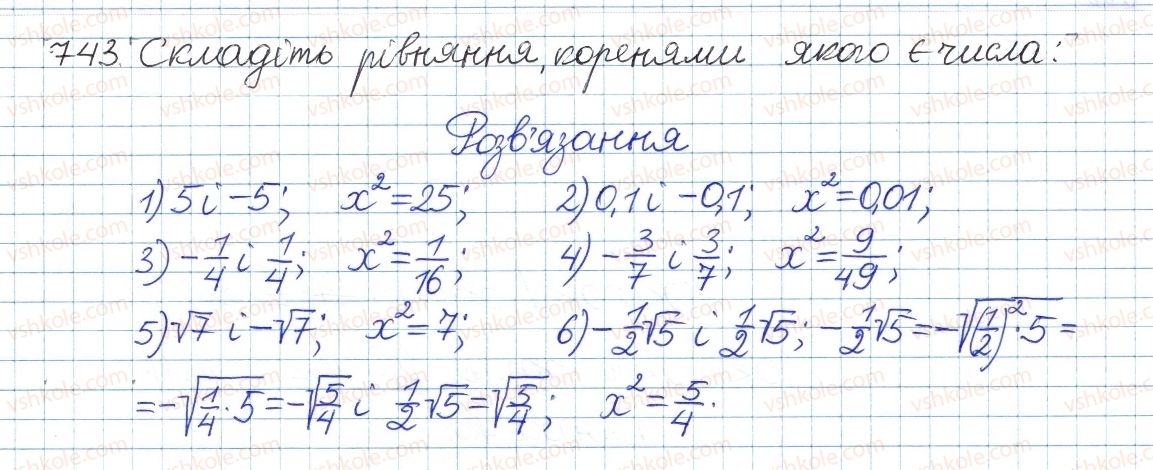 743. Складіть рівняння, коренями якого є числа:
Розв'язання
1) 5 і −5; x² = 25; 2) 0,1 і −0,1; x² = 0,01;
3) −1/4 і 1/4; x² = 1/16; 4) −3/7 і 3/7; x² = 9/49;
5) √7 і −√7; x² = 7; 6) −1/2√5 і 1/2√5; −1/2√5 = −√((1/2)²·5) =
= −√(1/4·5) = −√(5/4) і 1/2√5 = √(5/4); x² = 5/4.